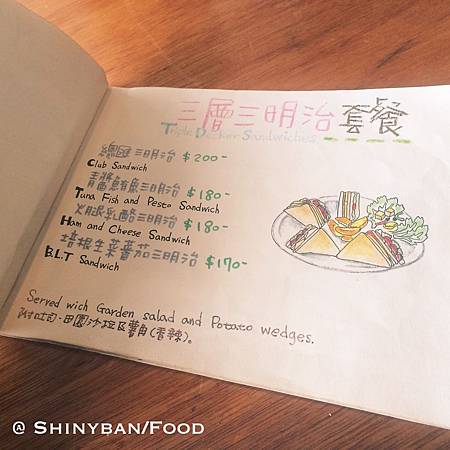 三層三明治 套餐
Triple Decker Sandwiches
總匯三明治 $200-
Club Sandwich
青醬鮪魚三明治 $180-
Tuna Fish and Pesto Sandwich
火腿乳酪三明治 $180-
Ham and Cheese Sandwich
培根生菜蕃茄三明治 $170-
B.L.T Sandwich
Served wich Garden salad and Potato wedges.
附吐司、田園沙拉及薯角(香辣)。
@ SHINYBAN/FOOD